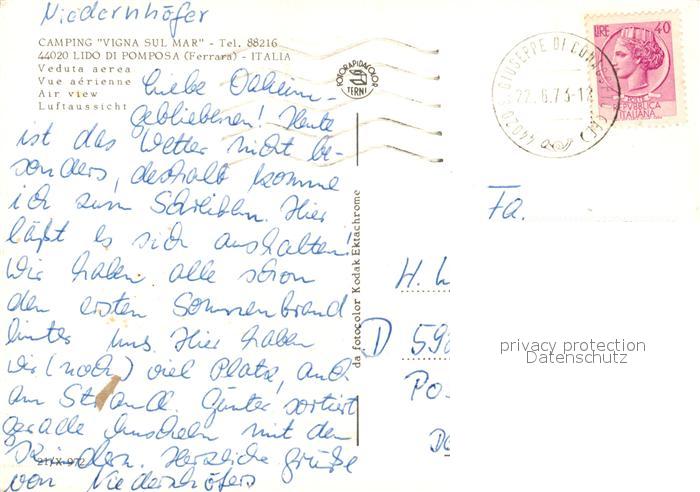 Niedernhöfer
CAMPING "VIGNA SUL MAR" - Tel. 88216
44020 LIDO DI POMPOSA (Ferrara) - ITALIA
Veduta aerea
Vue aérienne
Air view
Luftaussicht
Liebe Daheim-
gebliebenen! Heute
ist das Wetter nicht be-
sonders, deshalb komme
ich zum Schreiben. Hier
läßt es sich aushalten!
Wir haben alle schon
den ersten Sonnenbrand
hinter uns. Hier haben
wir (noch) viel Platz, auch
am Strand. Günter sortiert
gerade Muscheln mit den
Kindern. Herzliche Grüße
von Niedernhöfers
21/X-972
FOTORAPIDACOLOR
TERNI
da fotocolor Kodak Ektachrome
GIUSEPPE DI
22.6.73-12
44020
LIRE 40
POSTE
REPUBBLICA
ITALIANA
Fa.
H.
D 598
Po
privacy protection
Datenschutz